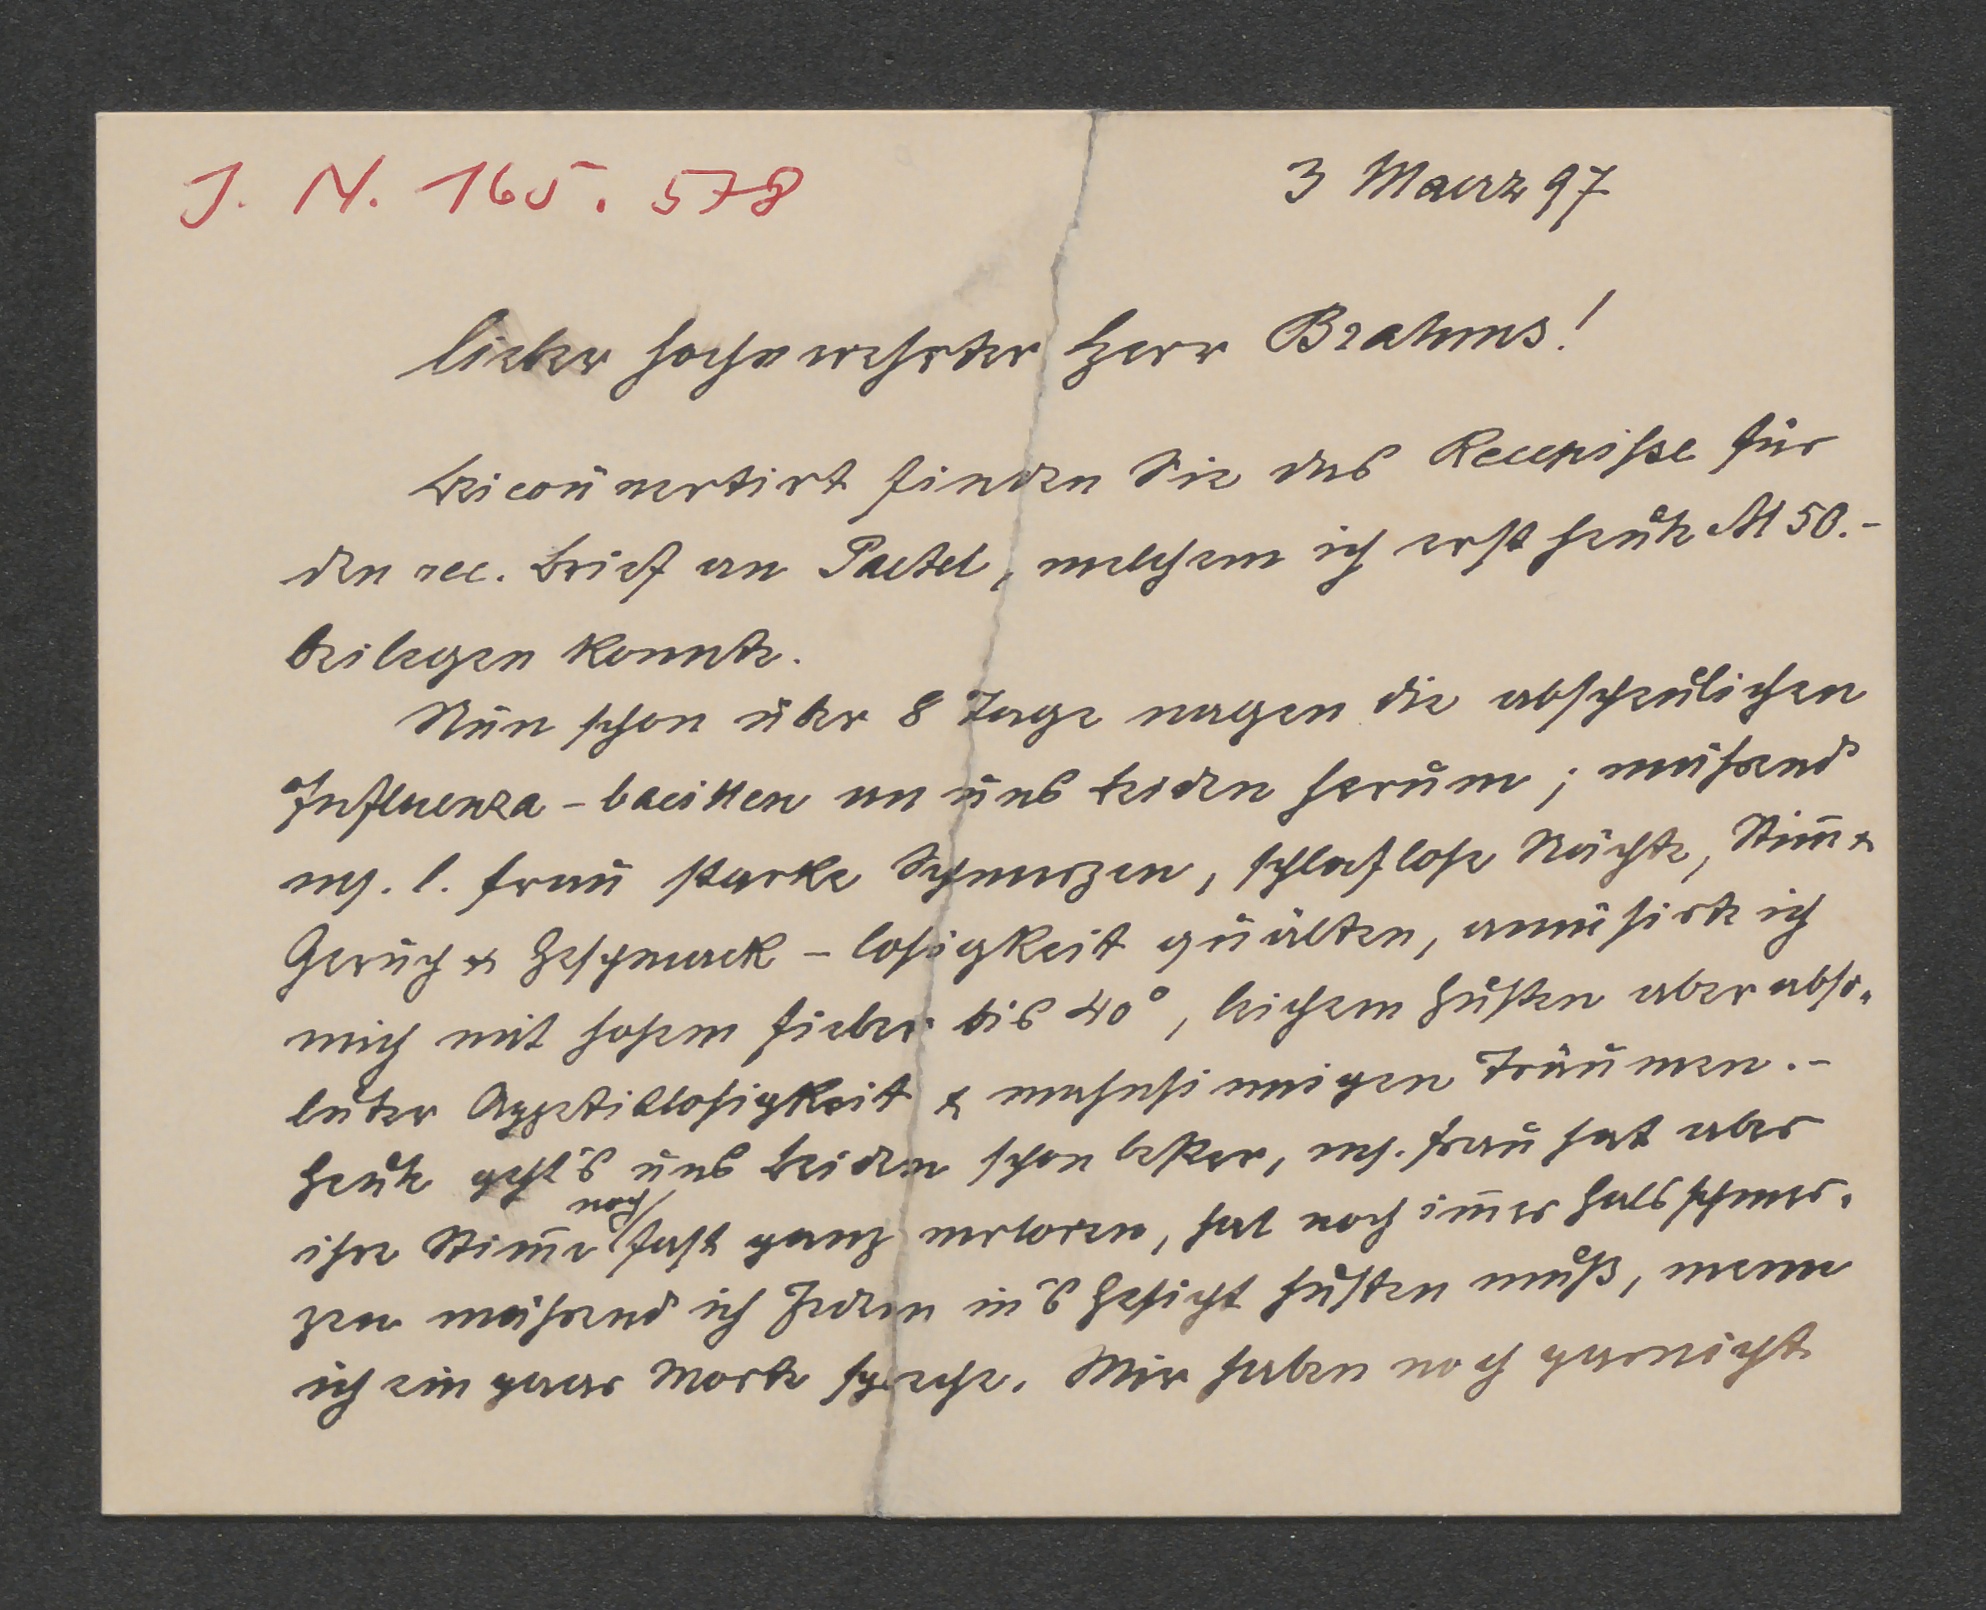 J. N. 165.578
3 Maerz 97
Lieber hochverehrter Herr Brahms!
Beicouvertirt finden Sie das Recepisse für
den rec. Brief an Paetel, welchem ich erst heute M 50.-
beilegen konnte.
Nun schon über 8 Tage nagen die abscheulichen
Influenza-bacillen an uns beiden herum; während
m. l. Frau starke Schmerzen, schlaflose Nächte, Stim̅ &
Geruch & Geschmack-losigkeit quälten, amüsirte ich
mich mit hohem Fieber bis 40°, leichem Husten aber abso-
luter Appetitlosigkeit & wahnsinnigen Träumen.-
Heute geht's uns beiden schon besser, m. Frau hat aber
noch
ihre Stim̅e fast ganz verloren, hat noch im̅er Halsschmer-
zen während ich Jedem in's Gesicht husten muß, wenn
ich ein paar Worte spreche. Wir haben noch garnicht